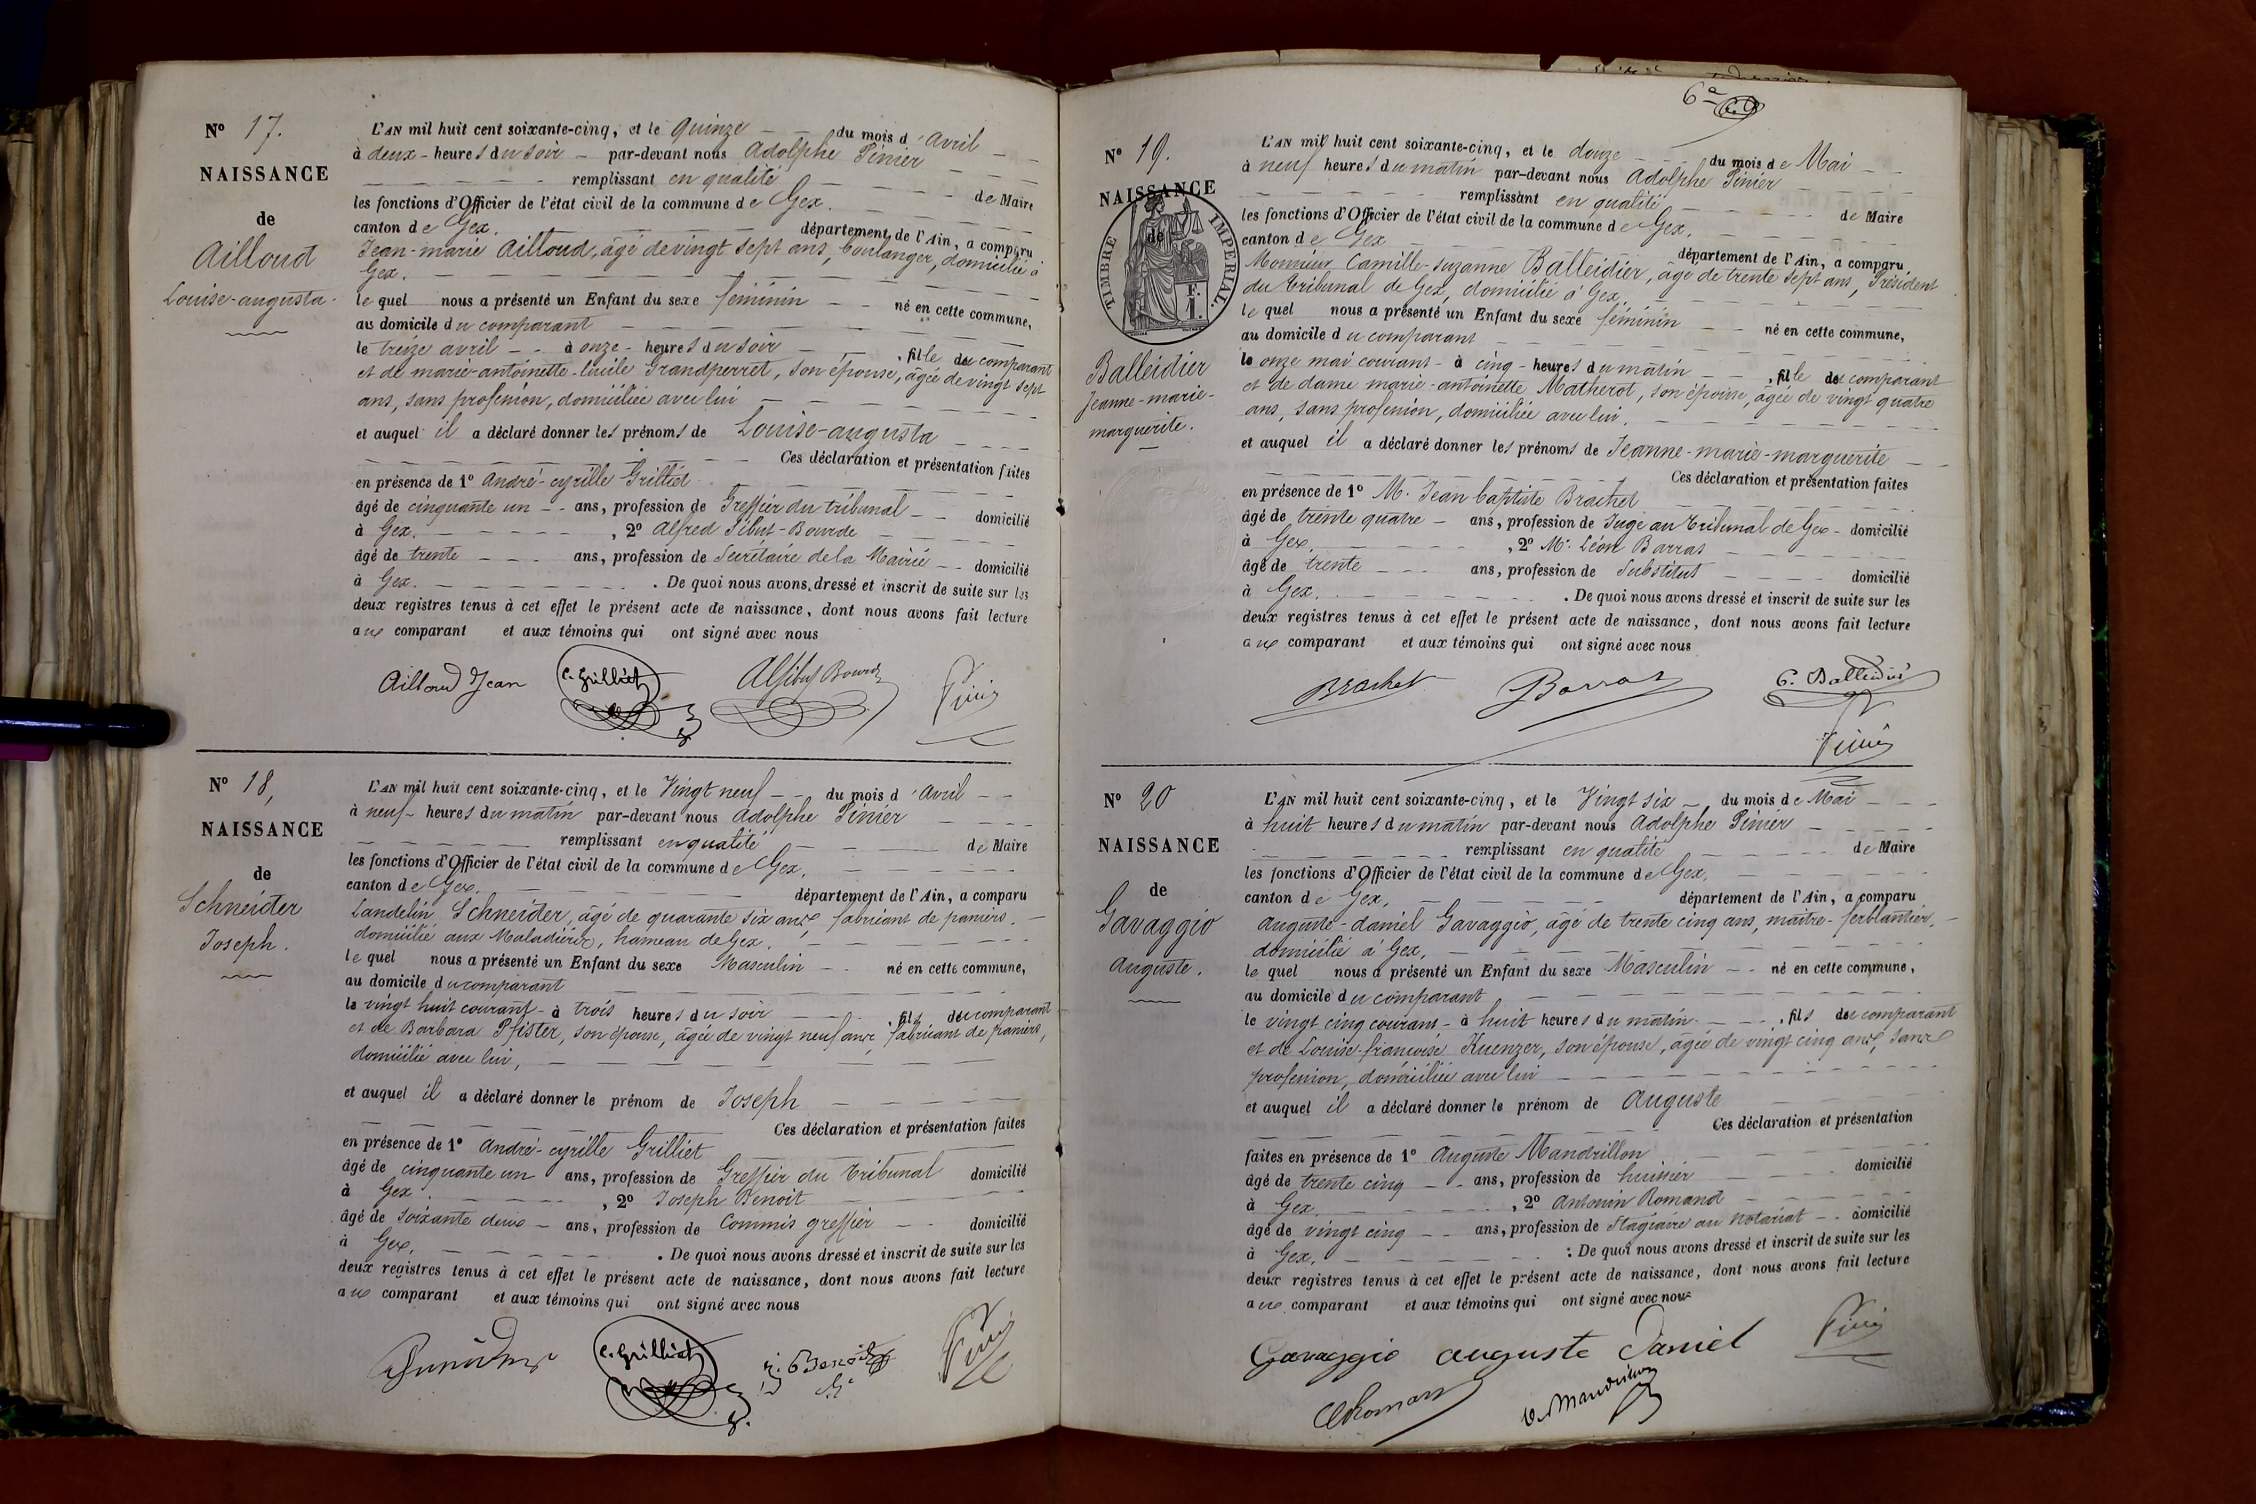 N° 17.
NAISSANCE
de
Ailloud
Louise-augusta.
L'AN mil huit cent soixante-cinq, et le quinze du mois d'Avril
à deux heures du soir par-devant nous Adolphe Pinier
remplissant en qualité de Maire
les fonctions d'Officier de l'état civil de la commune de Gex.
canton de Gex. département de l'Ain, a comparu
Jean-marie Ailloud, âgé de vingt sept ans, boulanger, domicilié à
Gex.
le quel nous a présenté un Enfant du sexe féminin né en cette commune,
au domicile du comparant
le treize avril à onze heures du soir, fille du comparant
et de marie-antoinette-lucile Grandperret, son épouse, âgée de vingt sept
ans, sans profession, domiciliée avec lui
et auquel il a déclaré donner les prénoms de Louise-augusta
Ces déclaration et présentation faites
en présence de 1° andré-cyrille Grilliet
âgé de cinquante un ans, profession de Greffier du tribunal domicilié
à Gex. , 2° Alfred Sibut-Bourde
âgé de trente ans, profession de Secrétaire de la Mairie domicilié
à Gex. . De quoi nous avons dressé et inscrit de suite sur les
deux registres tenus à cet effet le présent acte de naissance, dont nous avons fait lecture
aux comparant et aux témoins qui ont signé avec nous
Ailloud Jean C. Grilliet A Sibut Bourde Pinier
N° 18,
NAISSANCE
de
Schneider
Joseph.
L'AN mil huit cent soixante-cinq, et le Vingt neuf du mois d'Avril
à neuf heures du matin par-devant nous Adolphe Pinier
remplissant en qualité de Maire
les fonctions d'Officier de l'état civil de la commune de Gex.
canton de Gex. département de l'Ain, a comparu
Landelin Schneider, âgé de quarante six ans, fabricant de paniers.
domicilié aux Maladières, hameau de Gex.
le quel nous a présenté un Enfant du sexe Masculin né en cette commune,
au domicile du comparant
le vingt huit courant à trois heures du soir, fils du comparant
et de Barbara Pfister, son épouse, âgée de vingt neuf ans, fabricant de paniers,
domicilié avec lui,
et auquel il a déclaré donner le prénom de Joseph
Ces déclaration et présentation faites
en présence de 1° andré-cyrille Grilliet
âgé de cinquante un ans, profession de Greffier du tribunal domicilié
à Gex. , 2° Joseph Benoit
âgé de soixante deux ans, profession de Commis greffier domicilié
à Gex. . De quoi nous avons dressé et inscrit de suite sur les
deux registres tenus à cet effet le présent acte de naissance, dont nous avons fait lecture
aux comparant et aux témoins qui ont signé avec nous
C. Grilliet J. Benoit Pinier
6e
N° 19.
NAISSANCE
de
TIMBRE IMPERIAL.
F.
1.
Balleidier
Jeanne-marie-
marguerite.
L'AN mil huit cent soixante-cinq, et le douze du mois de Mai
à neuf heures du matin par-devant nous Adolphe Pinier
remplissant en qualité de Maire
les fonctions d'Officier de l'état civil de la commune de Gex.
canton de Gex département de l'Ain, a comparu
Monsieur Camille-suzanne Balleidier, âgé de trente sept ans, Président
du tribunal de Gex, domicilié à Gex.
le quel nous a présenté un Enfant du sexe féminin né en cette commune,
au domicile du comparant
le onze mai courant à cinq heures du matin, fille du comparant
et de dame marie-antoinette Matherot, son épouse, âgée de vingt quatre
ans, sans profession, domiciliée avec lui.
et auquel il a déclaré donner les prénoms de Jeanne-marie-marguerite
Ces déclaration et présentation faites
en présence de 1° M. Jean baptiste Brachet
âgé de trente quatre ans, profession de Juge au tribunal de Gex domicilié
à Gex. , 2° Mr. Léon Barras
âgé de trente ans, profession de Substitut domicilié
à Gex. . De quoi nous avons dressé et inscrit de suite sur les
deux registres tenus à cet effet le présent acte de naissance, dont nous avons fait lecture
aux comparant et aux témoins qui ont signé avec nous
Brachet Barras C. Balleidier
Pinier
N° 20
NAISSANCE
de
Gavaggio
auguste.
L'AN mil huit cent soixante-cinq, et le Vingt six du mois de Mai
à huit heures du matin par-devant nous Adolphe Pinier
remplissant en qualité de Maire
les fonctions d'Officier de l'état civil de la commune de Gex.
canton de Gex. département de l'Ain, a comparu
auguste-daniel Gavaggio, âgé de trente cinq ans, maître-ferblantier.
domicilié à Gex.
le quel nous a présenté un Enfant du sexe Masculin né en cette commune,
au domicile du comparant
le vingt cinq courant à huit heures du matin, fils du comparant
et de Louise-francoise Kuenzer, son épouse, âgée de vingt cinq ans, sans
profession, domiciliée avec lui
et auquel il a déclaré donner le prénom de auguste
Ces déclaration et présentation
faites en présence de 1° auguste Mandrillon
âgé de trente cinq ans, profession de huissier domicilié
à Gex. , 2° antonin Romand
âgé de vingt cinq ans, profession de Stagiaire au notariat domicilié
à Gex. : De quoi nous avons dressé et inscrit de suite sur les
deux registres tenus à cet effet le présent acte de naissance, dont nous avons fait lecture
aux comparant et aux témoins qui ont signé avec nous
Gavaggio auguste Daniel Pinier
A Romand A. Mandrillon